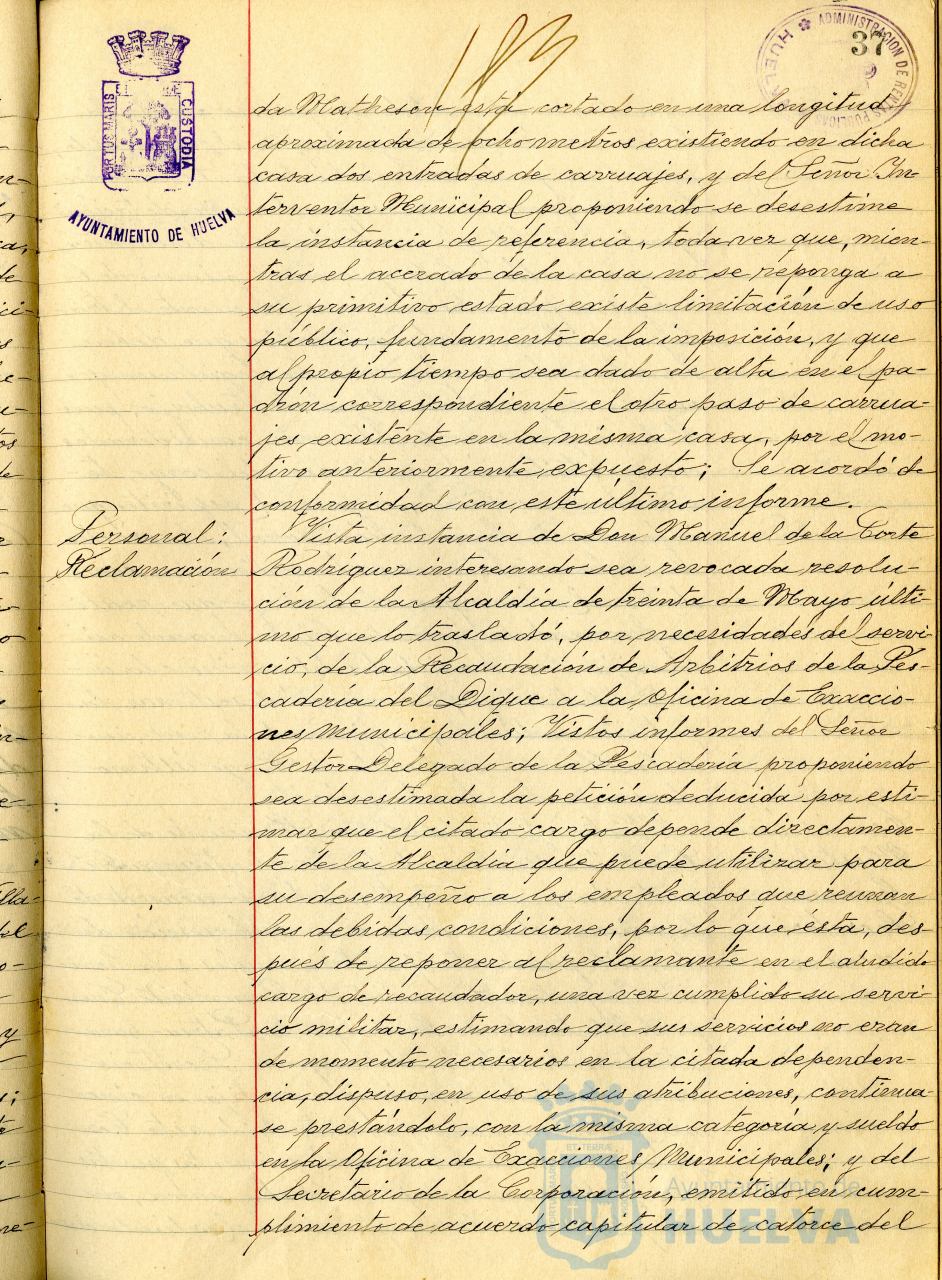 183
37
ADMINISTRACION DE RENTAS PUBLICAS
HUELVA
PORTUS MARIS
CUSTODIA
AYUNTAMIENTO DE HUELVA
da Matheson está cortado en una longitud
aproximada de ocho metros existiendo en dicha
casa dos entradas de carruajes, y del Señor In-
terventor Municipal proponiendo se desestime
la instancia de referencia, toda vez que, mien-
tras el acerado de la casa no se reponga a
su primitivo estado existe limitación de uso
público, fundamento de la imposición, y que
al propio tiempo sea dado de alta en el pa-
drón correspondiente el otro paso de carrua-
jes existente en la misma casa, por el mo-
tivo anteriormente expuesto; Se acordó de
conformidad con este último informe.
Personal:
Reclamación
Vista instancia de Don Manuel de la Corte
Rodríguez interesando sea revocada resolu-
ción de la Alcaldía de treinta de Mayo últi-
mo que lo trasladó, por necesidades del servi-
cio, de la Recaudación de Arbitrios de la Pes-
cadería del Dique a la Oficina de Exaccio-
nes Municipales; Vistos informes del Señor
Gestor Delegado de la Pescadería proponiendo
sea desestimada la petición deducida por esti-
mar que el citado cargo depende directamen-
te de la Alcaldía que puede utilizar para
su desempeño a los empleados que reunan
las debidas condiciones, por lo que ésta, des-
pués de reponer al reclamante en el aludido
cargo de recaudador, una vez cumplido su servi-
cio militar, estimando que sus servicios no eran
de momento necesarios en la citada dependen-
cia, dispuso, en uso de sus atribuciones, continua-
se prestándolo, con la misma categoría y sueldo
en la Oficina de Exacciones Municipales; y del
Secretario de la Corporación, emitido en cum-
plimiento de acuerdo capitular de catorce del
Ayuntamiento de
HUELVA